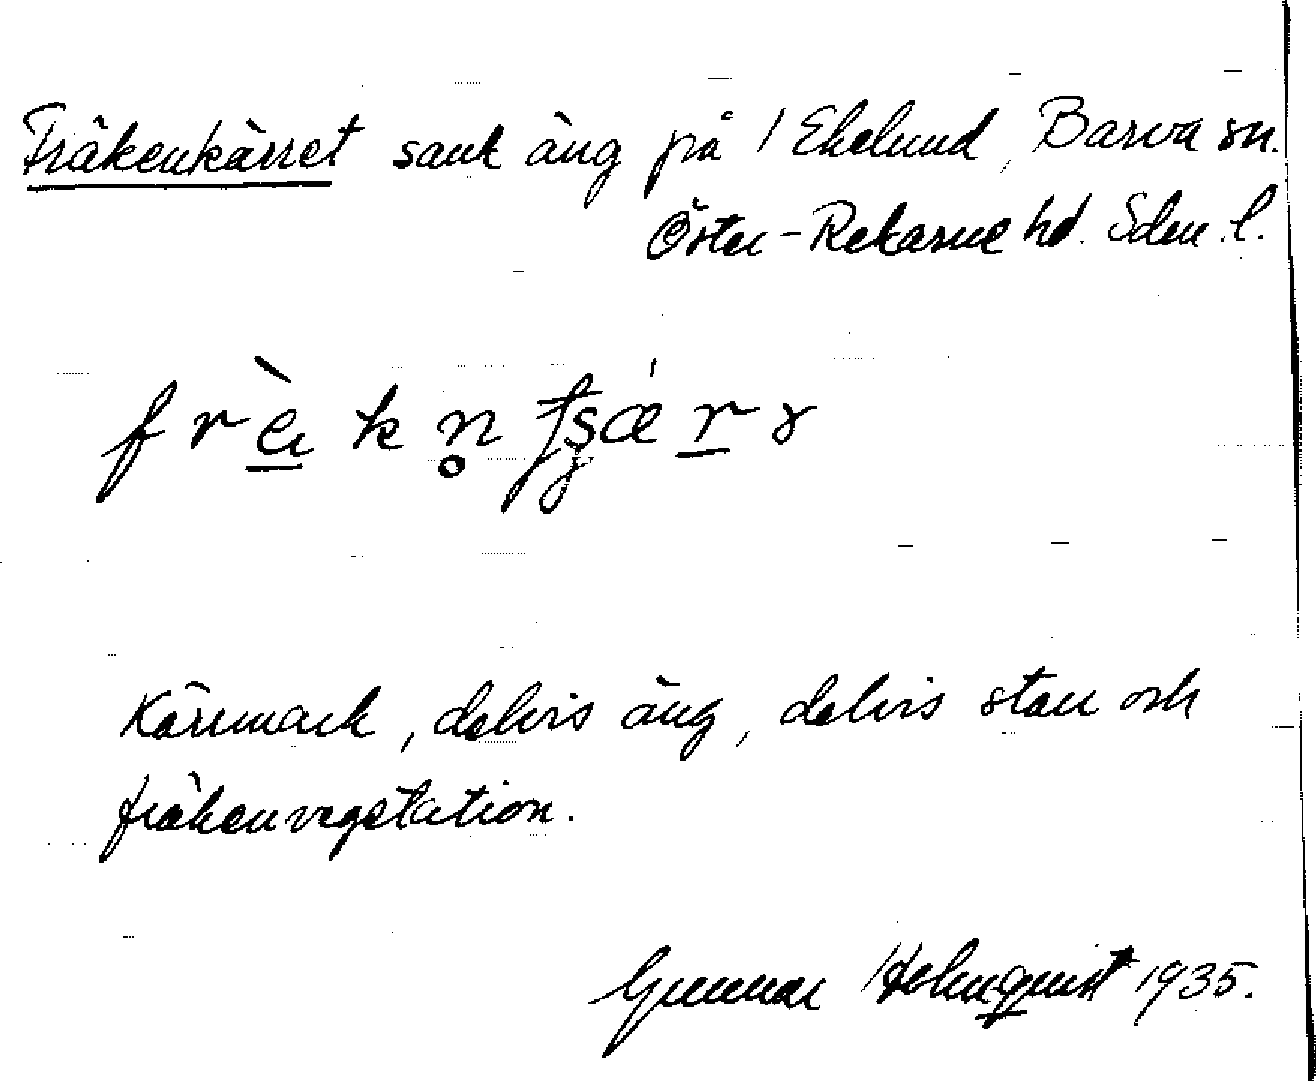 Fräkenkärret sank äng på 1 Ekelund, Barva sn.
Öster-Rekarne hd. Sdm. l.
Kärrmark, delvis äng, delvis starr och
fräkenvegetation.
Gunnar Holmquist 1935.